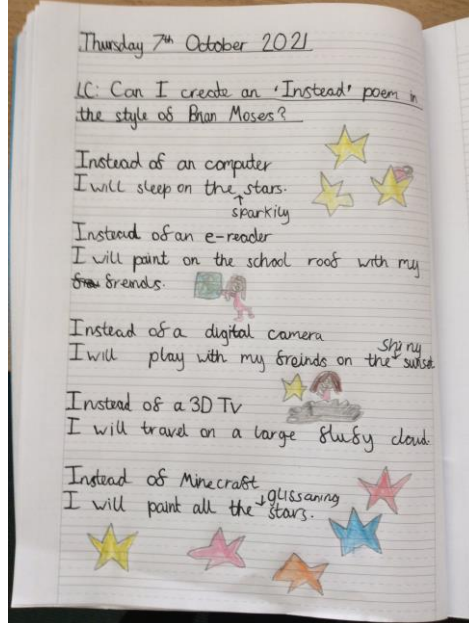 Thursday 7th October 2021
LC: Can I create an 'Instead' poem in
the style of Brian Moses?
Instead of an computer
I will sleep on the sparkily stars.
Instead of an e-reader
I will paint on the school roof with my
frends.
Instead of a digital camera
I will play with my freinds on the shiny sunset
Instead of a 3D TV
I will travel on a large flufy cloud.
Instead of Minecraft
I will paint all the glissaning stars.